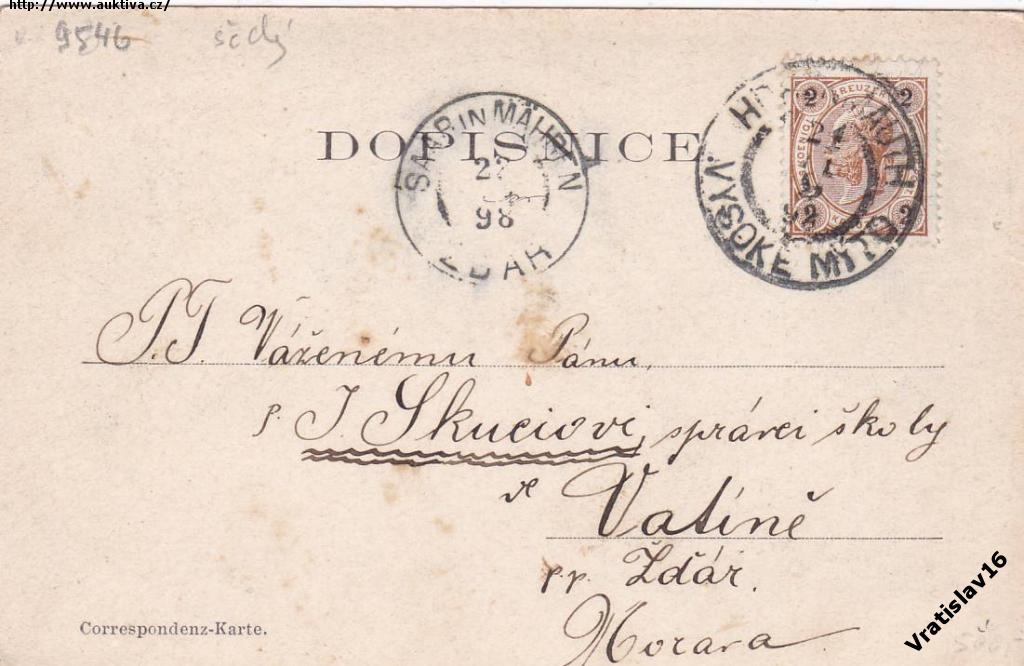 http://www.auktiva.cz/
9546 šedý
DOPISNICE
SAAR IN MÄHREN
98
ŽĎÁR
2 KREUZER 2
VYSOKÉ MÝTO
P.T. Váženému Pánu,
p. J Skuciovi, správci školy
ve
Vatíně
p.p. Žďár.
Morava
Correspondenz-Karte.
Vratislav16